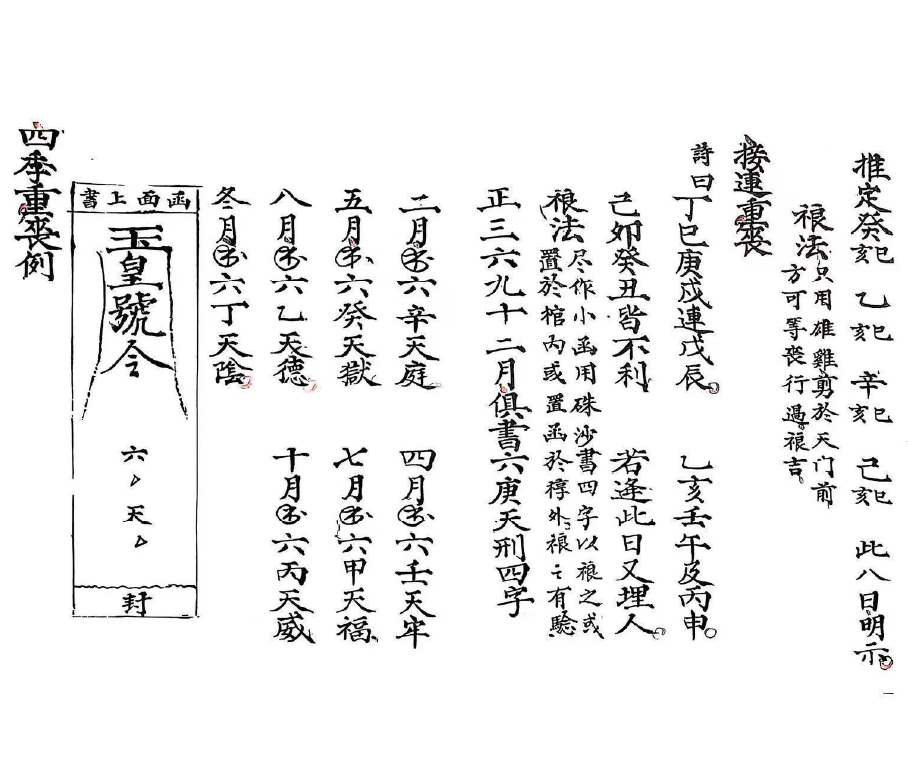 推定癸巳亥 乙巳亥 辛巳亥 己巳亥 此八日明示
禳法只用雄雞剪於天门前
方可等喪行過禳吉
接連重喪
詩曰丁巳庚戍連戊辰 乙亥壬午及丙申
己卯癸丑皆不利 若逢此日又埋人
禳法尽作小函用硃沙書四字以禳之或
置於棺内或置函於㭳外禳之有驗
正三六九十二月俱書六庚天刑四字
二月六辛天庭 四月六壬天牢
五月六癸天獄 七月六甲天福
八月六乙天德 十月六丙天威
冬月六丁天陰
函面上書
玉皇號令
六天
封
四季重喪例
一